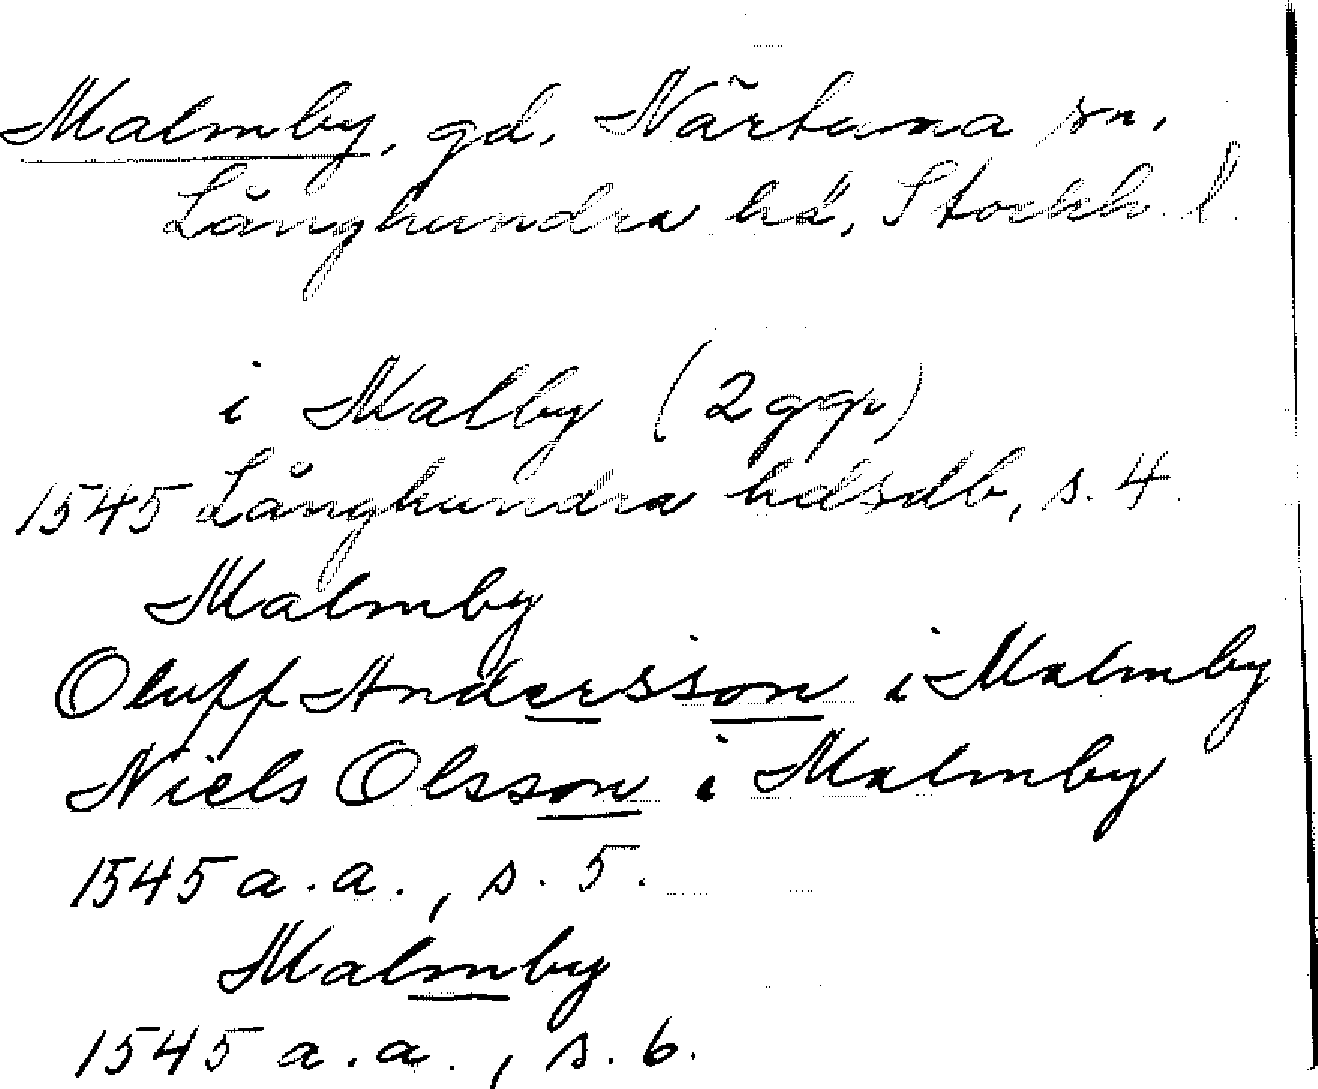 Malmby, gd, Närtuna sn,
Långhundra hd, Stockh. l.
i Malby (2 ggr)
1545 Långhundra hdsdb, s. 4.
Malmby
Oluff Andersson i Malmby
Niels Olsson i Malmby
1545 a.a., s. 5.
Malmby
1545 a.a., s. 6.